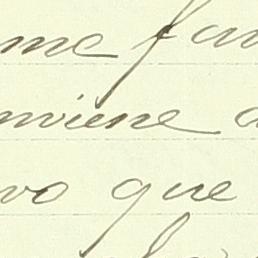 me fa
nviene a
vo que